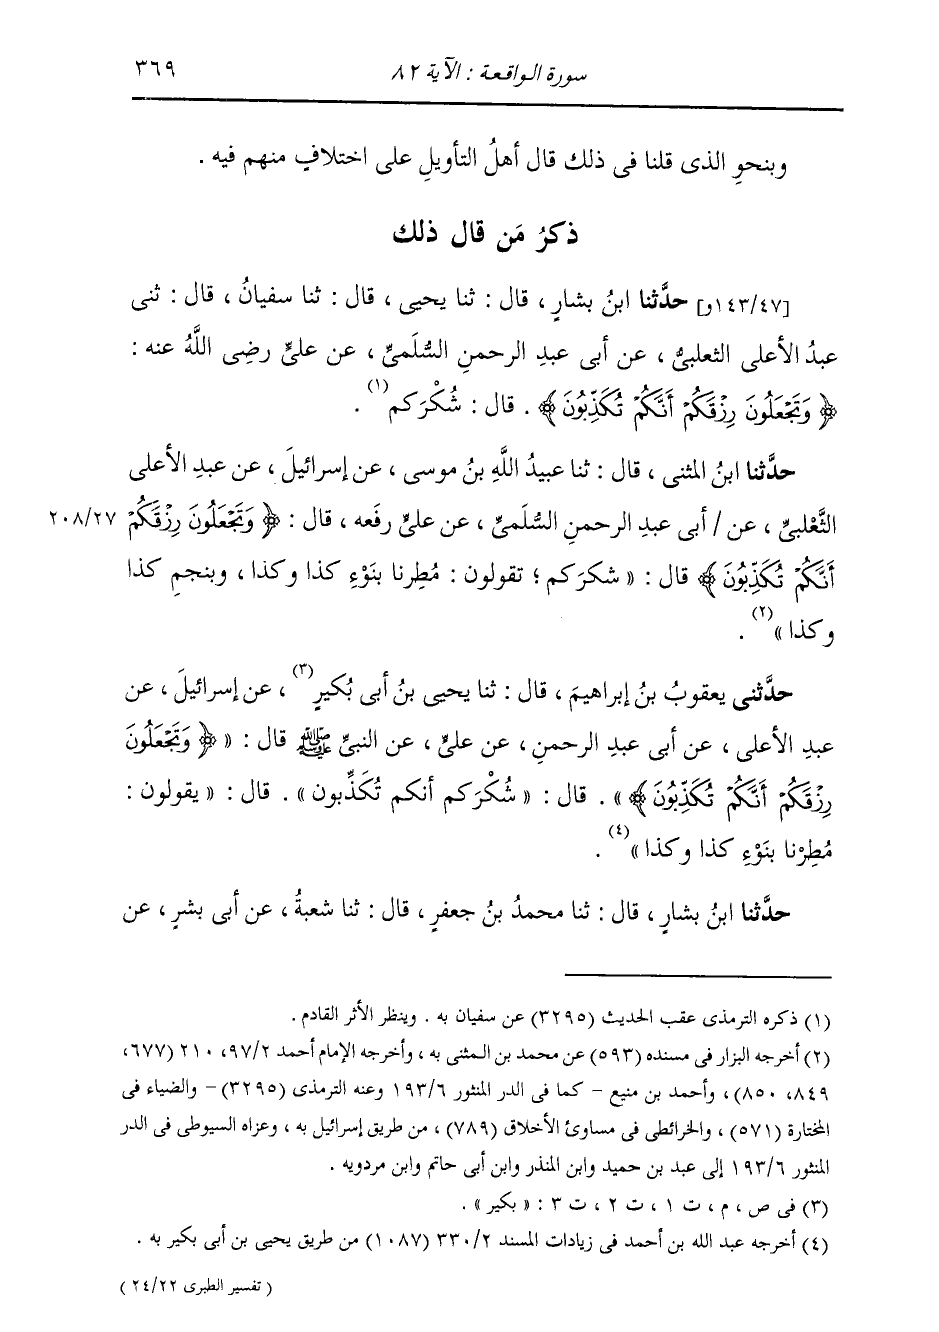 سورة الواقعة : الآية ٨٢
٣٦٩
وبنحوِ الذى قلنا فى ذلك قال أهلُ التأويلِ على اختلافٍ منهم فيه .
ذكرُ مَن قال ذلك
[١٤٣/٤٧و] حدَّثنا ابنُ بشارٍ ، قال : ثنا يحيى ، قال : ثنا سفيانُ ، قال : ثنى
عبدُ الأعلى الثعلبىُّ ، عن أبى عبدِ الرحمنِ السُّلَمىِّ ، عن علىٍّ رضِى اللَّهُ عنه :
﴿ وَتَجْعَلُونَ رِزْقَكُمْ أَنَّكُمْ تُكَذِّبُونَ ﴾ . قال : شُكْرَكم (١) .
حدَّثنا ابنُ المثنى ، قال : ثنا عبيدُ اللَّهِ بنُ موسى ، عن إسرائيلَ ، عن عبدِ الأعلى
الثَّعْلبىِّ ، عن / أبى عبدِ الرحمنِ السُّلَمىِّ ، عن علىٍّ رفَعه ، قال : ﴿ وَتَجْعَلُونَ رِزْقَكُمْ ٢٠٨/٢٧
أَنَّكُمْ تُكَذِّبُونَ ﴾ قال : « شكرَكم ؛ تقولون : مُطِرنا بنَوْءِ كذا وكذا ، وبنجمِ كذا
وكذا » (٢) .
حدَّثنى يعقوبُ بنُ إبراهيمَ ، قال : ثنا يحيى بنُ أبى بُكيرٍ (٣) ، عن إسرائيلَ ، عن
عبدِ الأعلى ، عن أبى عبدِ الرحمنِ ، عن علىٍّ ، عن النبىِّ ﷺ قال : « ﴿ وَتَجْعَلُونَ
رِزْقَكُمْ أَنَّكُمْ تُكَذِّبُونَ ﴾ » . قال : « شُكْرَكم أنكم تُكَذِّبون » . قال : « يقولون :
مُطِرْنا بنَوْءِ كذا وكذا » (٤) .
حدَّثنا ابنُ بشارٍ ، قال : ثنا محمدُ بنُ جعفرٍ ، قال : ثنا شعبةُ ، عن أبى بشرٍ ، عن
(١) ذكره الترمذى عقب الحديث (٣٢٩٥) عن سفيان به . وينظر الأثر القادم .
(٢) أخرجه البزار فى مسنده (٥٩٣) عن محمد بن المثنى به ، وأخرجه الإمام أحمد ٩٧/٢، ٢١٠ (٦٧٧،
٨٤٩، ٨٥٠) ، وأحمد بن منيع - كما فى الدر المنثور ١٩٣/٦ وعنه الترمذى (٣٢٩٥) - والضياء فى
المختارة (٥٧١) ، والخرائطى فى مساوئ الأخلاق (٧٨٩) ، من طريق إسرائيل به ، وعزاه السيوطى فى الدر
المنثور ١٩٣/٦ إلى عبد بن حميد وابن المنذر وابن أبى حاتم وابن مردويه .
(٣) فى ص ، م ، ت ١ ، ت ٢ ، ت ٣ : « بكير » .
(٤) أخرجه عبد الله بن أحمد فى زيادات المسند ٣٣٠/٢ (١٠٨٧) من طريق يحيى بن أبى بكير به .
( تفسير الطبرى ٢٤/٢٢ )